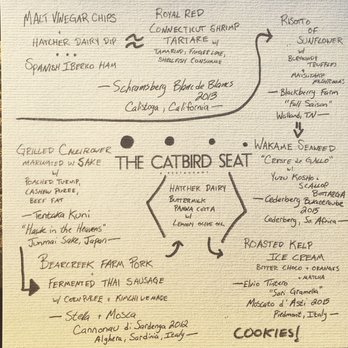 MALT VINEGAR CHIPS
+
HATCHER DAIRY DIP
SPANISH IBERKO HAM
≈
ROYAL RED
CONNECTICUT SHRIMP
TARTARE w/
TAMARIND, FINGER LIME,
SHELLFISH CONSOMME
— Schramsberg Blanc de Blancs
2013
Calistoga, California —
RISOTTO
OF
SUNFLOWER
w/
BURGUNDY
TRUFFLES
+
MAIITAKE
MUSHROOMS
— Blackberry Farm
"Fall Saison"
Walland, TN —
GRILLED CAULIFLOWER
MARINATED w/ SAKE
w/
POACHED TURNIP,
CASHEW PUREE,
BEEF FAT
— Tentaka Kuni
"Hawk in the Heavens"
Junmai Sake, Japan —
THE CATBIRD SEAT
RESTAURANT
HATCHER DAIRY
BUTTERMILK
PANNA COTTA
w/
LEMON OLIVE OIL
WAKAME SEAWEED
"CRESTE DE GALLO"
w/
YUZU KOSHO +
SCALLOP
BOTTARGA
— Cederberg Bukettraube
2015
Cederberg, So Africa —
BEARCREEK FARM PORK
+
FERMENTED THAI SAUSAGE
w/ CORN PUREE + KIMCHI WEMAGE
— Stella + Mosca
Cannonau di Sardegna 2012
Alghero, Sardinia, Italy —
ROASTED KELP
ICE CREAM
w/
BITTER CHOCO + ORANGES
+ MATCHA
— Elvio Tintero
"Sorì Gramella"
Moscato d'Asti 2015
Piedmont, Italy —
COOKIES!